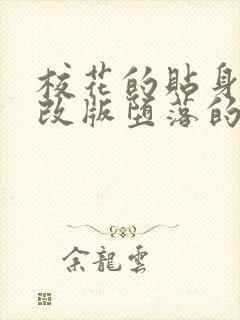 校花的貼身
改版堕落的
余龍雲